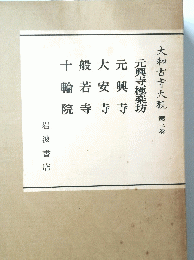 大和古寺大観 第三巻
元興寺極楽坊
元興寺
大安寺
般若寺
十輪院
岩波書店